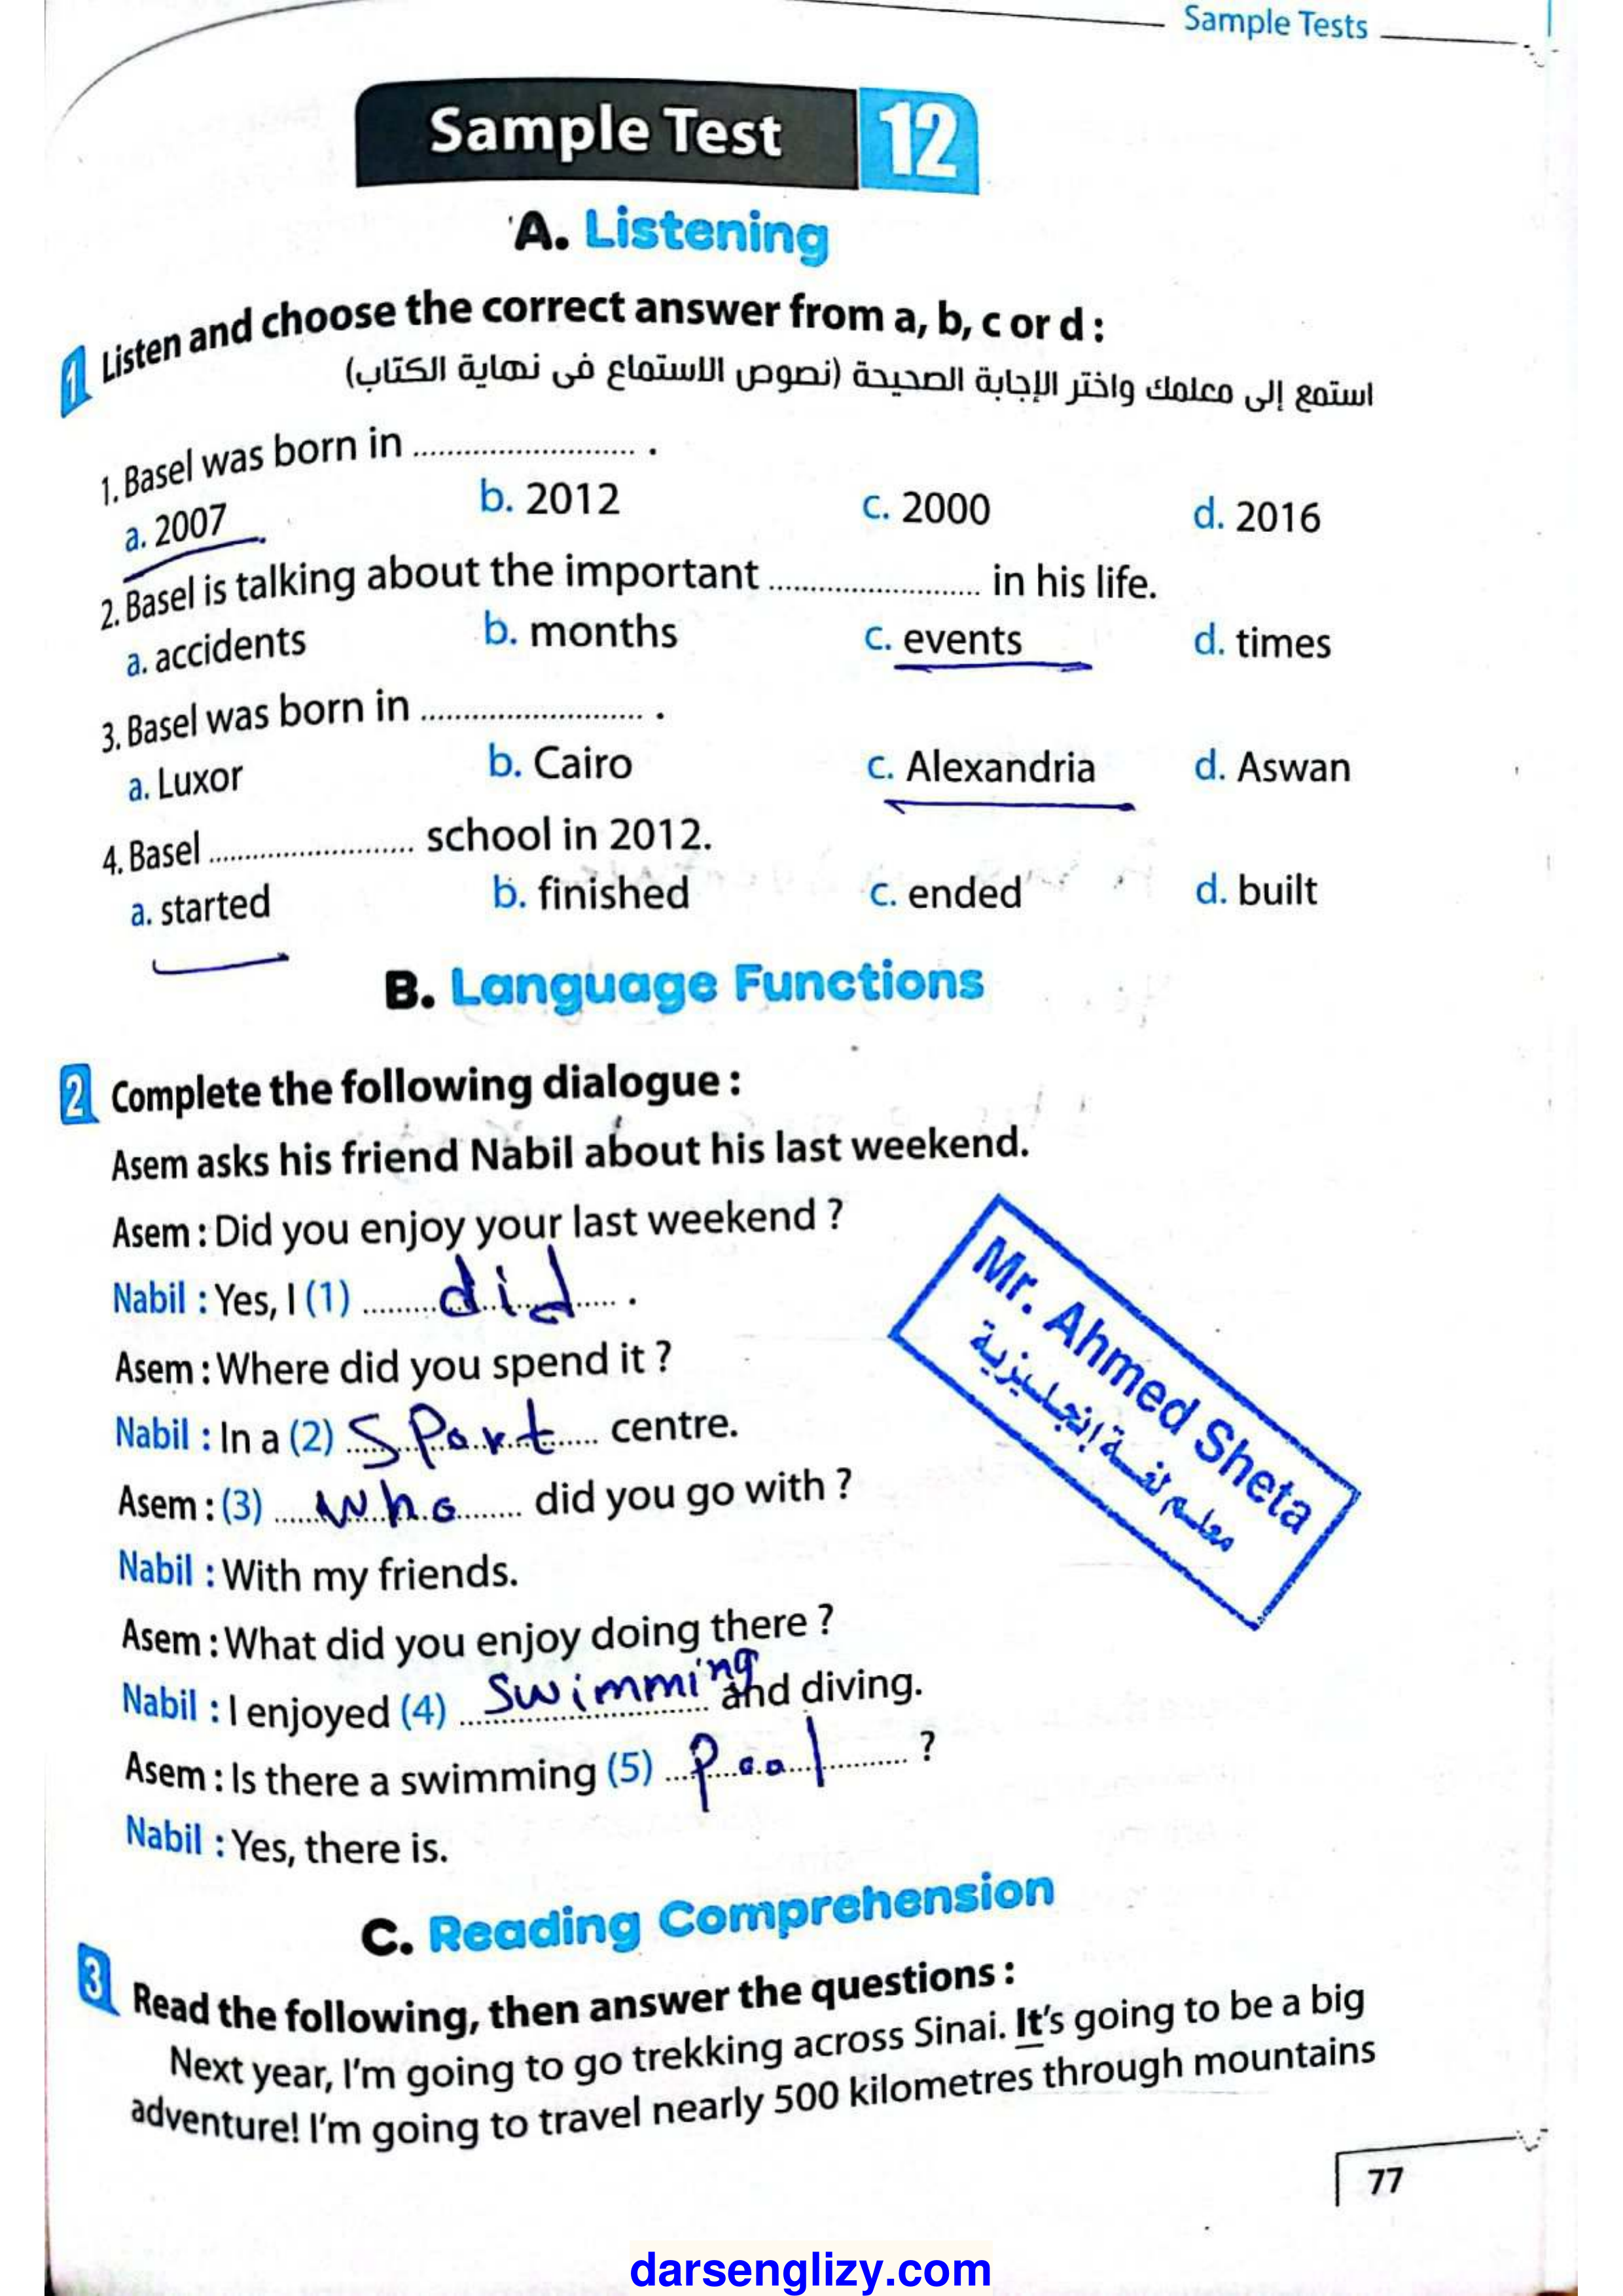 Sample Tests
Sample Test 12
A. Listening
1 Listen and choose the correct answer from a, b, c or d :
استمع إلى معلمك واختر الإجابة الصحيحة (نصوص الاستماع فى نهاية الكتاب)
1. Basel was born in .......................... .
a. 2007 b. 2012 c. 2000 d. 2016
2. Basel is talking about the important ......................... in his life.
a. accidents b. months c. events d. times
3. Basel was born in .......................... .
a. Luxor b. Cairo c. Alexandria d. Aswan
4. Basel ......................... school in 2012.
a. started b. finished c. ended d. built
B. Language Functions
2 Complete the following dialogue :
Asem asks his friend Nabil about his last weekend.
Asem : Did you enjoy your last weekend ?
Nabil : Yes, I (1) did .
Asem : Where did you spend it ?
Nabil : In a (2) sport centre.
Asem : (3) who did you go with ?
Nabil : With my friends.
Asem : What did you enjoy doing there ?
Nabil : I enjoyed (4) swimming and diving.
Asem : Is there a swimming (5) pool ?
Nabil : Yes, there is.
Mr. Ahmed Sheta
معلم لغة إنجليزية
C. Reading Comprehension
3 Read the following, then answer the questions :
Next year, I'm going to go trekking across Sinai. It's going to be a big
adventure! I'm going to travel nearly 500 kilometres through mountains
77
darsenglizy.com